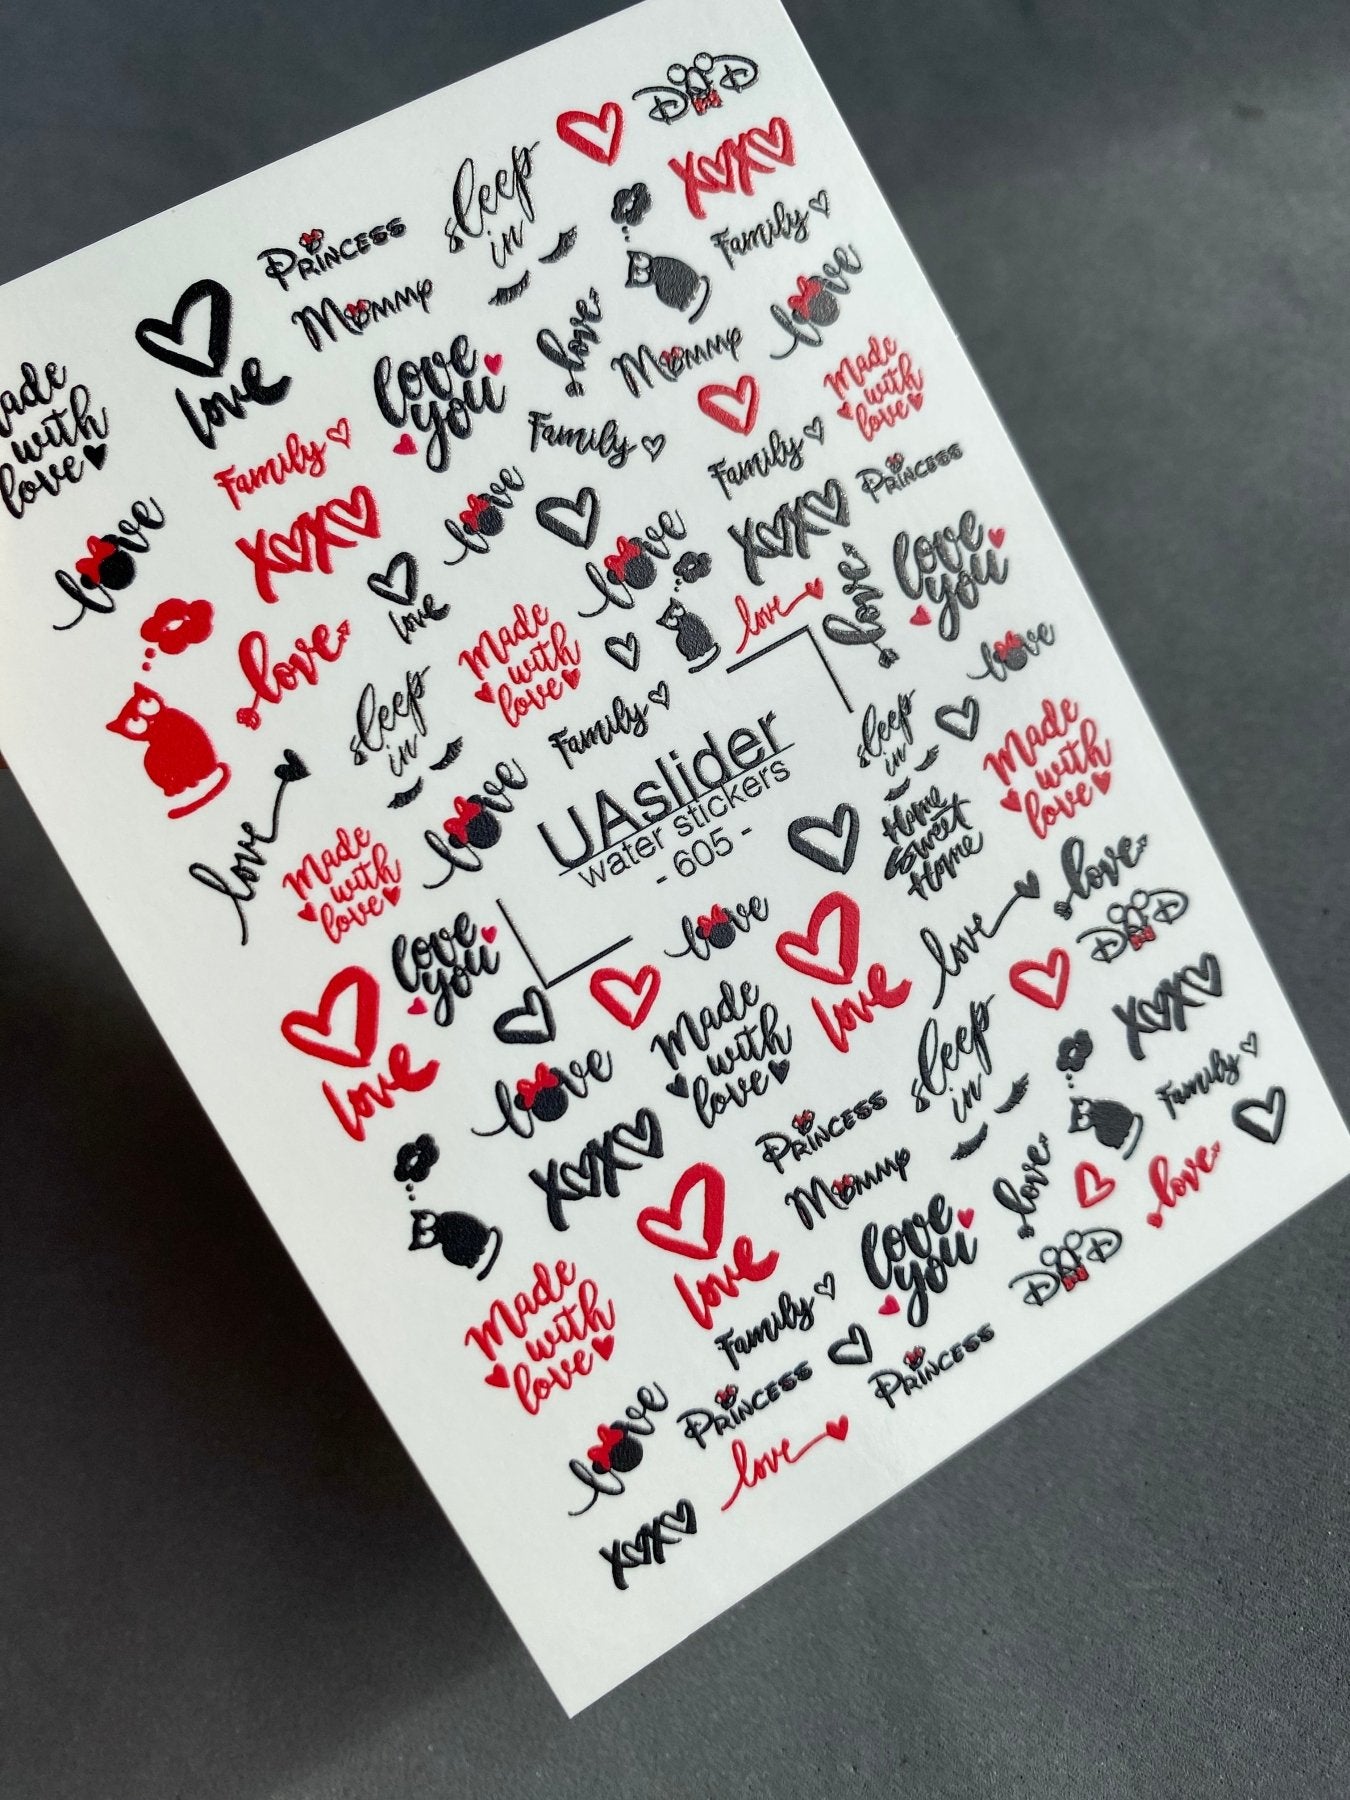 DAD
XOXO
sleep
in
Family
PRINCESS
Mommy
love
Mommy
love
Made
with
love
love
love
you
Family
Made
with
love
Family
Family
PRINCESS
XOXO
love
XOXO
love
love
love
you
love
love
Made
with
love
love
love
love
sleep
in
Family
sleep
in
Made
with
love
UAslider
water stickers
- 605 -
Home
Sweet
Home
love
love
Made
with
love
love
love
DAD
love
you
love
love
XOXO
Made
with
love
sleep
in
love
love
Family
XOXO
PRINCESS
Mommy
love
love
love
you
DAD
Made
with
love
love
Family
PRINCESS
PRINCESS
love
love
XOXO